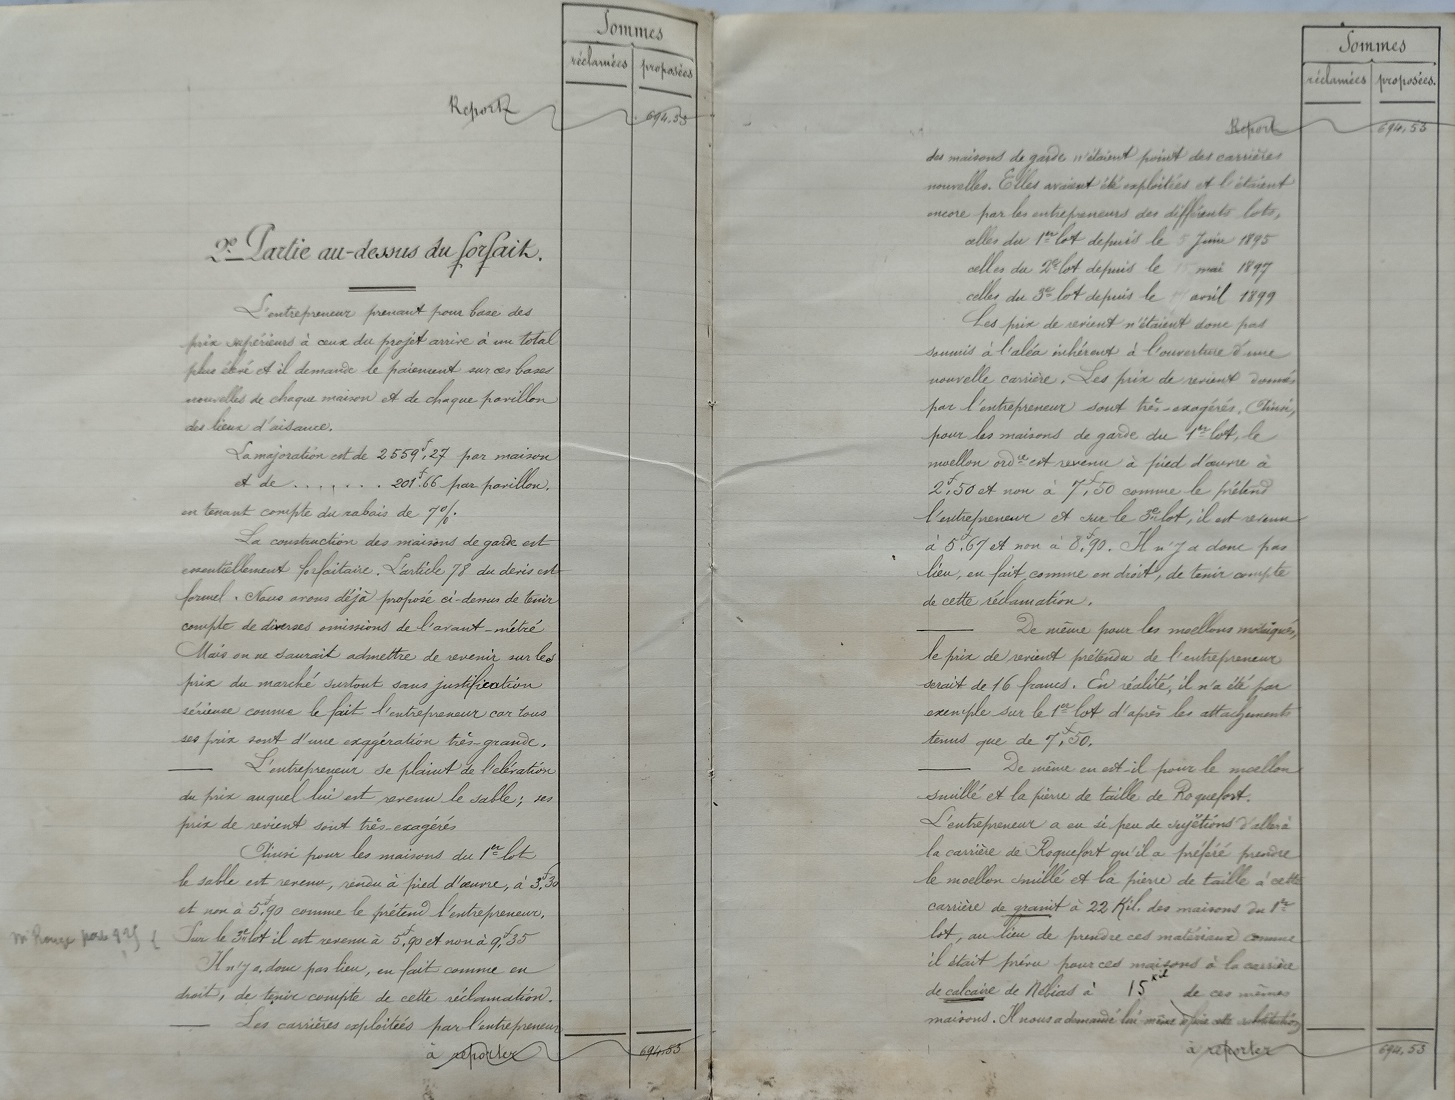 Sommes
réclamées proposées
Report 694.53
2e Partie au-dessus du forfait.
L'entrepreneur prenant pour base des
prix supérieurs à ceux du projet arrive à un total
plus élevé et il demande le paiement sur ces bases
nouvelles de chaque maison et de chaque pavillon
des lieux d'aisance.
La majoration est de 2559f,27 par maison
et de . . . . . . . 201f.66 par pavillon.
en tenant compte du rabais de 7%.
La construction des maisons de garde est
essentiellement forfaitaire. L'article 78 du devis est
formel. Nous avons déjà proposé ci-dessus de tenir
compte de diverses omissions de l'avant-métré
Mais on ne saurait admettre de revenir sur les
prix du marché surtout sans justification
sérieuse comme le fait l'entrepreneur car tous
ses prix sont d'une exagération très-grande.
— L'entrepreneur se plaint de l'élévation
du prix auquel lui est revenu le sable; ses
prix de revient sont très-exagérés
Ainsi pour les maisons du 1er lot
le sable est revenu, rendu à pied d'œuvre, à 3f,30
et non à 5f,90 comme le prétend l'entrepreneur.
Sur le 3e lot il est revenu à 5f,90 et non à 9f,35
Il n'y a donc pas lieu, en fait comme en
droit, de tenir compte de cette réclamation.
— Les carrières exploitées par l'entrepreneur
à reporter 694.53
Sommes
réclamées proposées.
Report 694.53
des maisons de garde n'étaient point des carrières
nouvelles. Elles avaient été exploitées et l'étaient
encore par les entrepreneurs des différents lots,
celles du 1er lot depuis le Juin 1895
celles du 2e lot depuis le mai 1897
celles du 3e lot depuis le avril 1899
Les prix de revient n'étaient donc pas
soumis à l'aléa inhérent à l'ouverture d'une
nouvelle carrière. Les prix de revient donnés
par l'entrepreneur sont très-exagérés. Ainsi,
pour les maisons de garde du 1er lot, le
moellon ordre est revenu à pied d'œuvre à
2f,50 et non à 7f,50 comme le prétend
l'entrepreneur et sur le 3e lot, il est revenu
à 5f.67 et non à 8f,90. Il n'y a donc pas
lieu, en fait, comme en droit, de tenir compte
de cette réclamation.
— De même pour les moellons mosaïqués,
le prix de revient prétendu de l'entrepreneur
serait de 16 francs. En réalité, il n'a été par
exemple sur le 1er lot d'après les attachements
tenus que de 7f,50.
— De même en est-il pour le moellon
smillé et la pierre de taille de Roquefort.
L'entrepreneur a eu si peu de sujétions d'aller à
la carrière de Roquefort qu'il a préféré prendre
le moellon smillé et la pierre de taille à cette
carrière de granit à 22 Kil. des maisons du 1er
lot, au lieu de prendre ces matériaux comme
il était prévu pour ces maisons à la carrière
de calcaire de Nébias à 15 kil de ces mêmes
maisons. Il nous a demandé lui même à faire cette substitution
à reporter 694.53